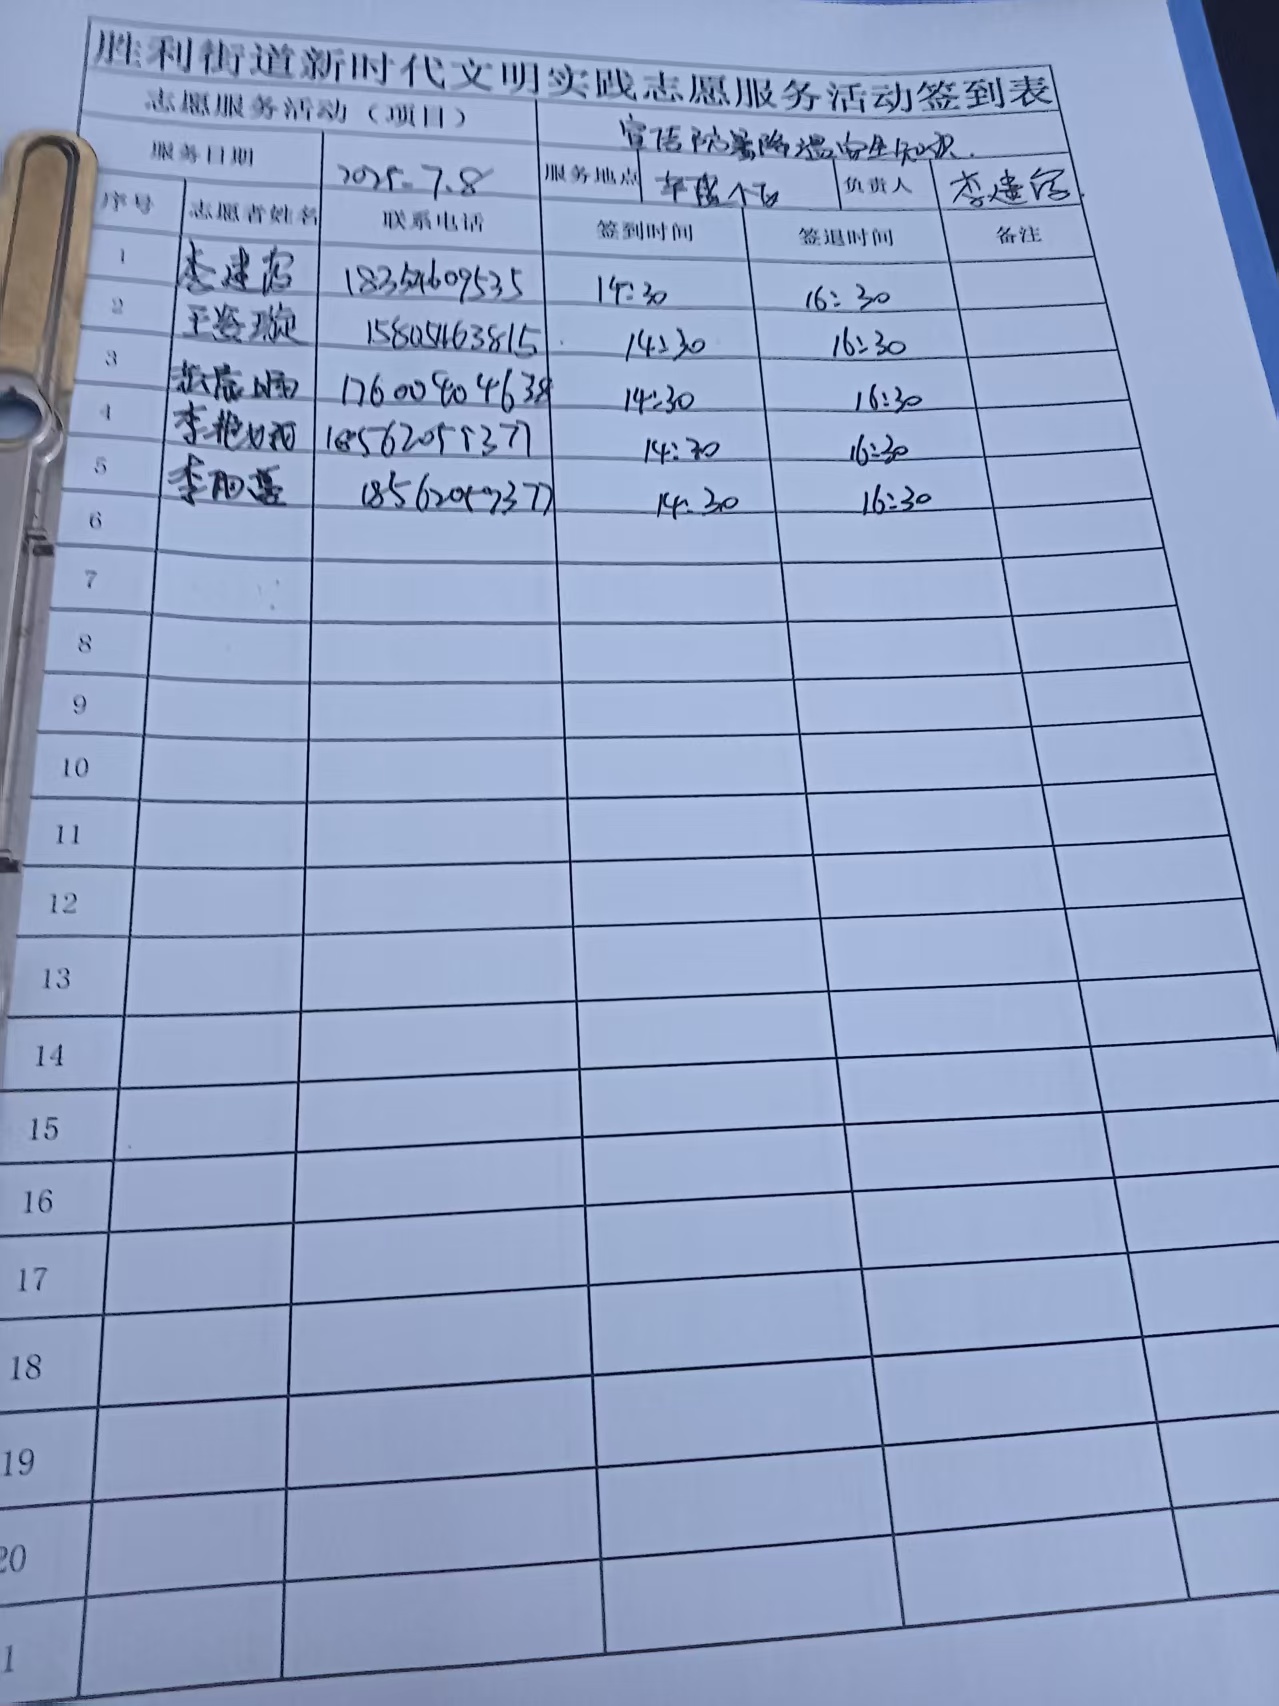 胜利街道新时代文明实践志愿服务活动签到表
志愿服务活动（项目） 宣传防暑降温卫生知识.
服务日期 2025.7.8 服务地点 负责人 李建
序号 志愿者姓名 联系电话 签到时间 签退时间 备注
1 李建 18354609535 14:30 16:30
2 王姿璇 15805463815 14:30 16:30
3 17600904638 14:30 16:30
4 李艳 18562059377 14:30 16:30
5 李 18562059377 14:30 16:30
6
7
8
9
10
11
12
13
14
15
16
17
18
19
20
1